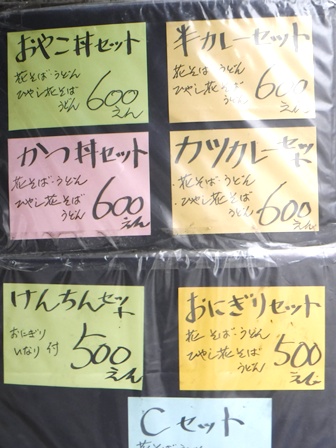 おやこ丼セット
花そば・うどん
ひやし花そば
うどん
600
えん
半カレーセット
花そば・うどん
ひやし花そば
うどん
600
えん
かつ丼セット
花そば・うどん
ひやし花そば
うどん
600
えん
カツカレーセット
・花そば・うどん
・ひやし花そば
うどん
600
えん
けんちんセット
おにぎり
いなり 付
500
えん
おにぎりセット
花そば・うどん
ひやし花そば
うどん
500
えん
Cセット
花そば・うどん